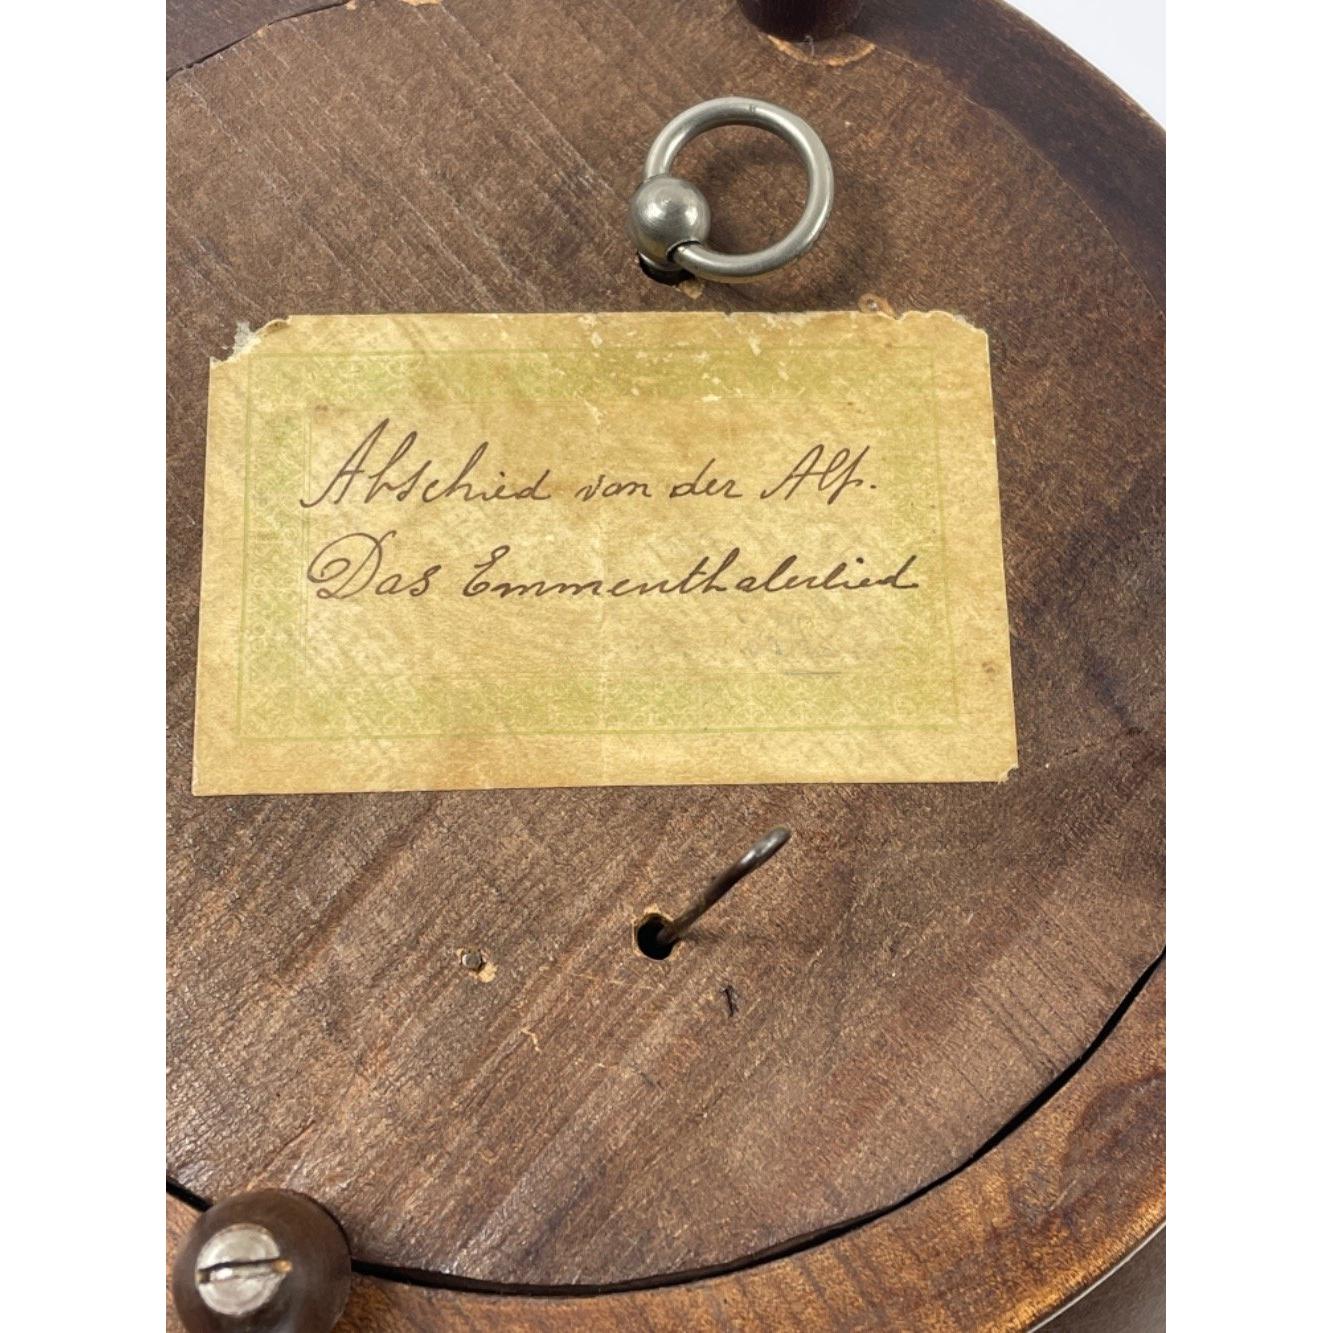 Abschied von der Alp.
Das Emmenthalerlied